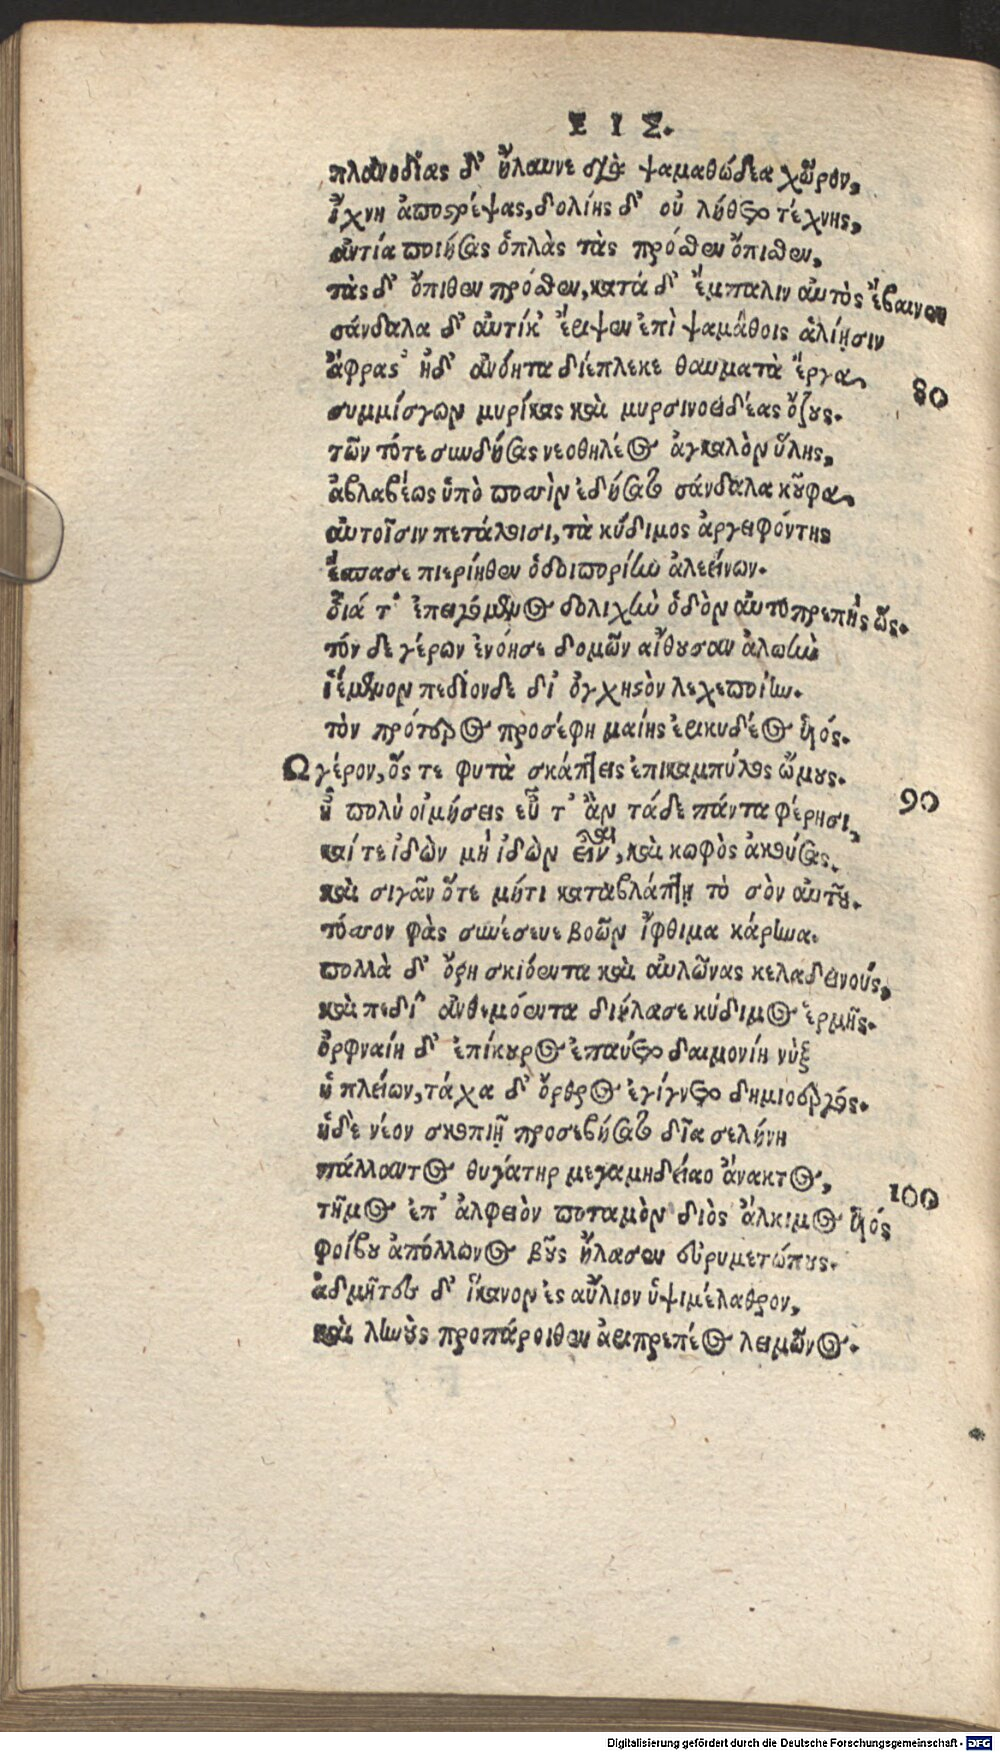 ΕΙΣ.
πλανοδίας δ' ἤλαυνε διὰ ψαμαθώδεα χῶρον,
ἴχνη ἀποστρέψας, δολίης δ' οὐ λήθετο τέχνης,
ἀντία ποιήσας ὁπλὰς τὰς πρόσθεν ὄπισθεν,
τὰς δ' ὄπιθεν πρόσθεν, κατά δ' ἔμπαλιν αὐτὸς ἔβαινεν
σάνδαλα δ' αὐτίκ' ἔριψεν ἐπὶ ψαμάθοις ἁλίῃσιν
ἄφρας' ἠδ' ἀνόητα διέπλεκε θαυματὰ ἔργα,
80
συμμίσγων μυρίκας καὶ μυρσινοειδέας ὄζους.
τῶν τότε συνδήσας νεοθηλέος ἀγκαλὸν ὕλης,
ἀβλαβέως ὑπὸ ποσσὶν ἐδήσατο σάνδαλα κοῦφα,
αὐτοῖσιν πετάλοισι, τὰ κύδιμος ἀργειφόντης
ἔσπασε πιερίηθεν ὁδοιπορίην ἀλεείνων.
διά τ' ἐπειγόμενος δολιχὴν ὁδὸν αὐτοπρεπὴς ὥς.
τόν δε γέρων ἐνόησε δομῶν αἴθουσαν ἀλωὴν
ἱέμενον πεδίονδε δι' ὀγχηστὸν λεχεποίην.
τὸν πρότερος προσέφη μαίης ἐρικυδέος υἱός.
Ω γέρον, ὅς τε φυτὰ σκάπτεις ἐπικαμπύλος ὤμους.
90
ἦ πολὺ οἰμήσεις εὖ τ' ἂν τάδε πάντα φέρησι,
καί τε ἰδὼν μὴ ἰδὼν εἶν, καὶ κωφὸς ἀκούσας.
καὶ σιγᾶν ὅτε μήτι καταβλάπτῃ τὸ σὸν αὐτοῦ.
τόσσον φὰς συνέσευε βοῶν ἴφθιμα κάρηνα.
πολλὰ δ' ὄρη σκιόεντα καὶ αὐλῶνας κελαδεινούς,
καὶ πεδί' ἀνθεμόεντα διήλασε κύδιμος ἑρμῆς.
ὀρφναίη δ' ἐπίκουρος ἐπαύετο δαιμονίη νὺξ
ἡ πλείων, τάχα δ' ὄρθρος ἐγίγνετο δημιοεργός.
ἡδὲ νέον σκοπιῇ προσεβήσατο δῖα σελήνη
πάλλαντος θυγάτηρ μεγαμηδείαο ἄνακτος,
100
τῆμος ἐπ' ἀλφειὸν ποταμὸν διὸς ἄλκιμος υἱός
φοίβου ἀπόλλωνος βοῦς ἤλασεν εὐρυμετώπους.
ἀδμῆτες δ' ἵκανον ἐς αὔλιον ὑψιμέλαθρον,
καὶ ληνοὺς προπάροιθεν ἀριπρεπέος λειμῶνος.
Digitalisierung gefördert durch die Deutsche Forschungsgemeinschaft - DFG